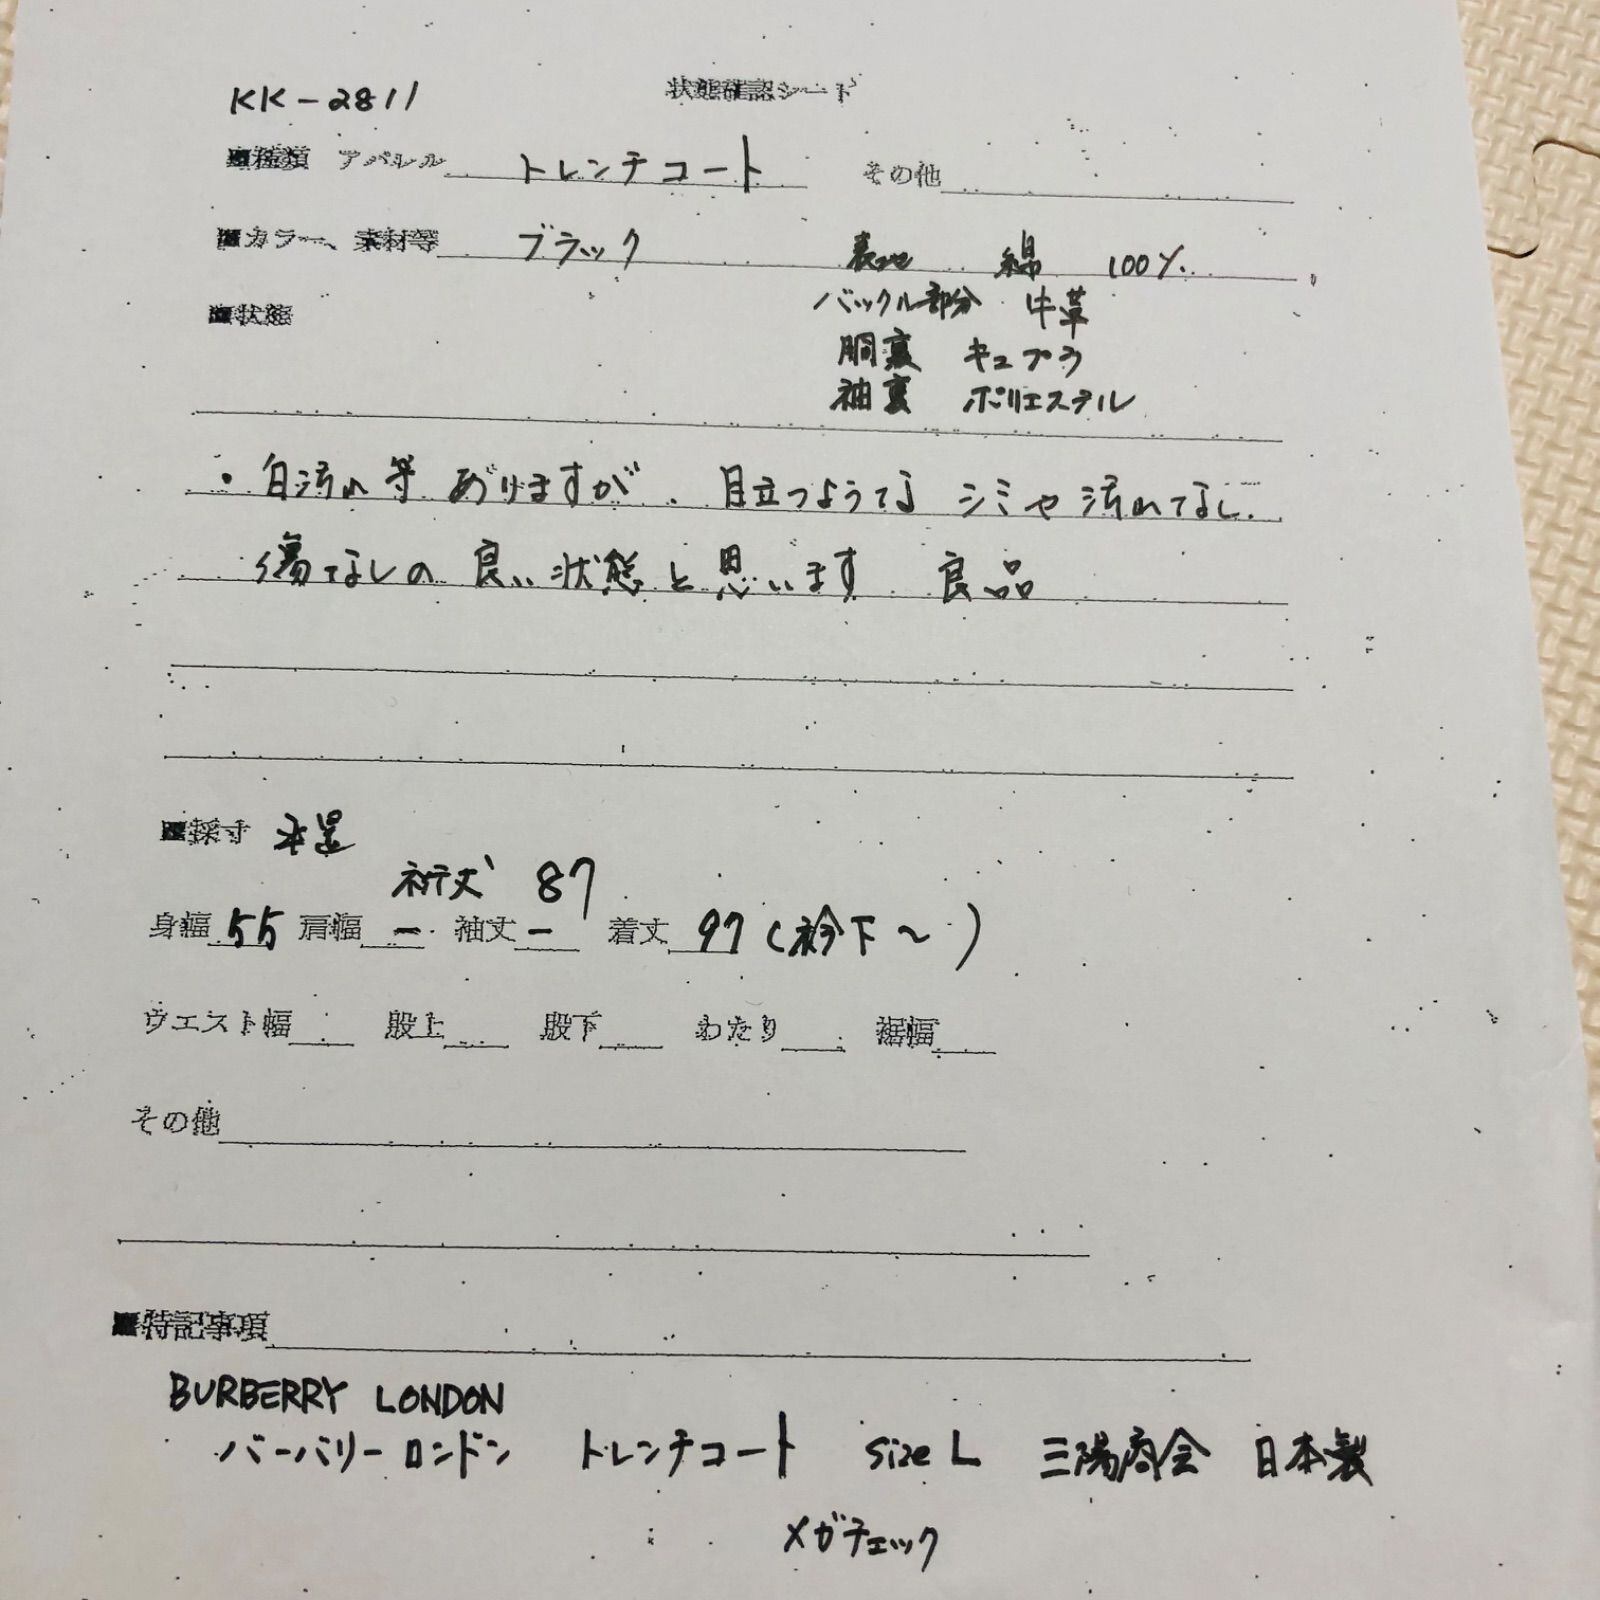 KK-2811 状態確認シート
■種類 アパレル トレンチコート その他
■カラー、素材等 ブラック 表地 綿 100%
バックル部分 牛革
■状態
胴裏 キュプラ
袖裏 ポリエステル
・白汚れ等ありますが、目立つようなシミや汚れなし、
傷なしの良い状態と思います 良品
■採寸 平置
裄丈 87
身幅 55 肩幅 ー 袖丈 ー 着丈 97(衿下〜)
ウエスト幅 股上 股下 わたり 裾幅
その他
■特記事項
BURBERRY LONDON
バーバリーロンドン トレンチコート size L 三陽商会 日本製
メガチェック